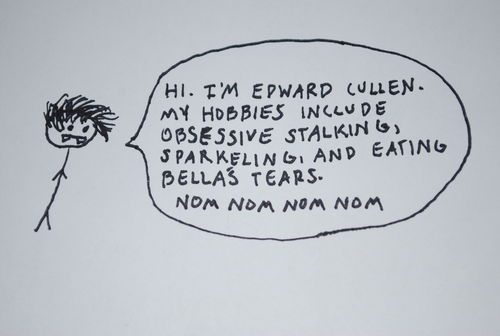 HI. I'M EDWARD CULLEN.
MY HOBBIES INCLUDE
OBSESSIVE STALKING,
SPARKELING, AND EATING
BELLA'S TEARS.
NOM NOM NOM NOM